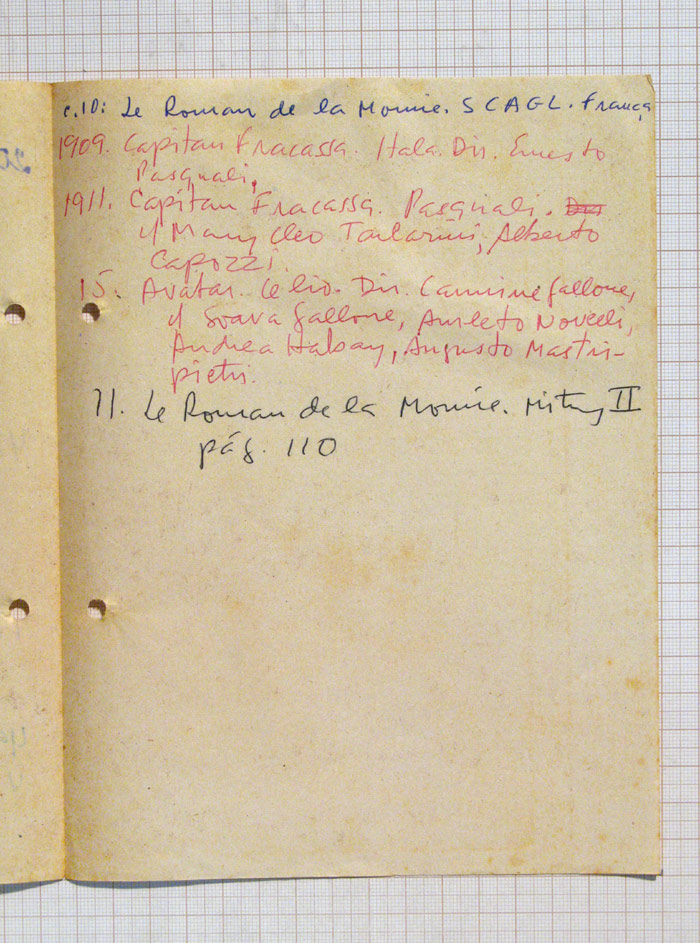 c.10: Le Roman de la Momie. SCAGL. França
1909. Capitan Fracassa. Itala. Dir. Ernesto
Pasquali,
1911. Capitan Fracassa. Pasquali.
Mary Cleo Tarlarini, Alberto
Capozzi.
15. Avatar. Celio. Dir. Carmine Gallone,
Soava Gallone, Amleto Novelli,
Andrea Habay, Augusto Mastri-
pietri.
11. Le Roman de la Momie. Mitry II
pág. 110